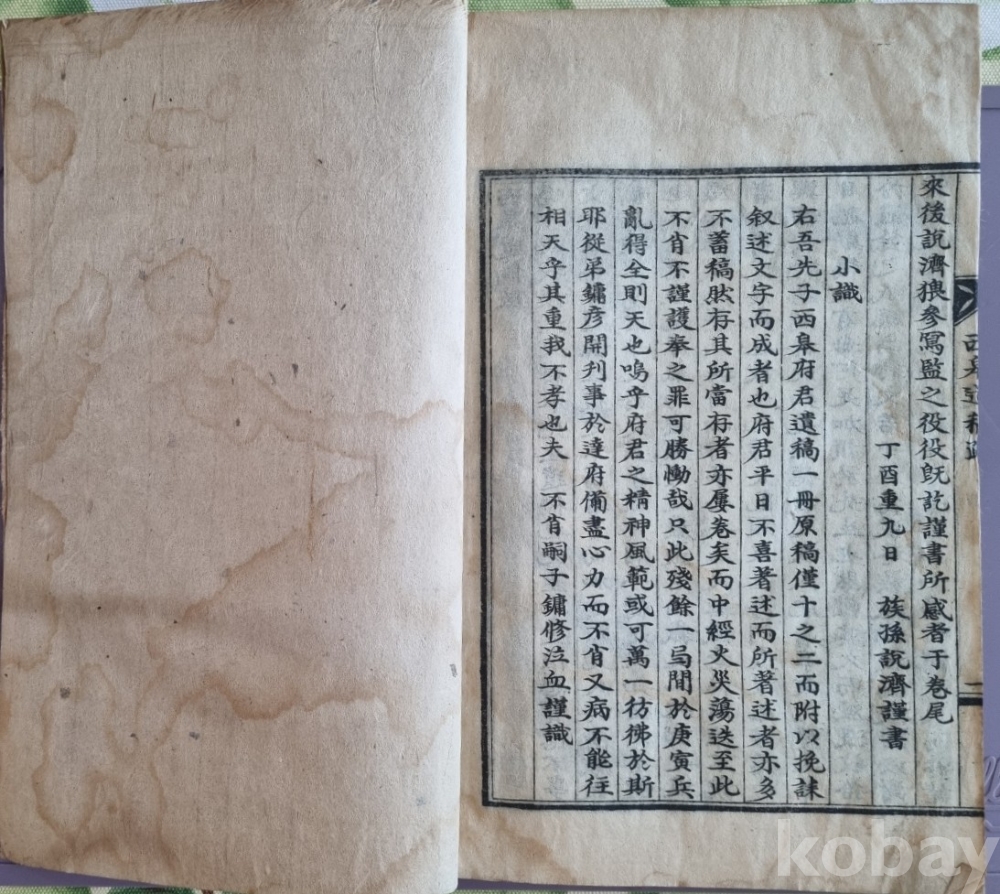 來後說濟猥參寫監之役役旣訖謹書所感者于卷尾
丁酉重九日 族孫說濟謹書
小識
右吾先子西皐府君遺稿一冊原稿僅十之二而附以挽誄
叙述文字而成者也府君平日不喜著述而所著述者亦多
不蓄稿然存其所當存者亦屢卷矣而中經火災蕩迭至此
不肖不謹護奉之罪可勝慟哉只此殘餘一局間於庚寅兵
亂得全則天也嗚乎府君之精神風範或可萬一彷彿於斯
耶從弟鏞彦開刋事於達府備盡心力而不肖又病不能往
相天乎其重我不孝也夫 不肖嗣子鏞修泣血謹識
西皐遺稿
kobay